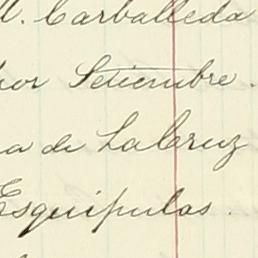 M. Carballeda
por Setiembre.
a de La Cruz
Esquipulas.